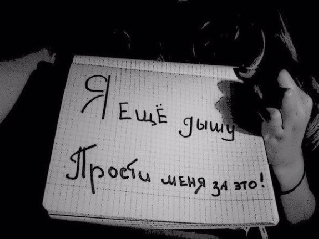 Я ЕЩЁ дышу
Прости меня за это!